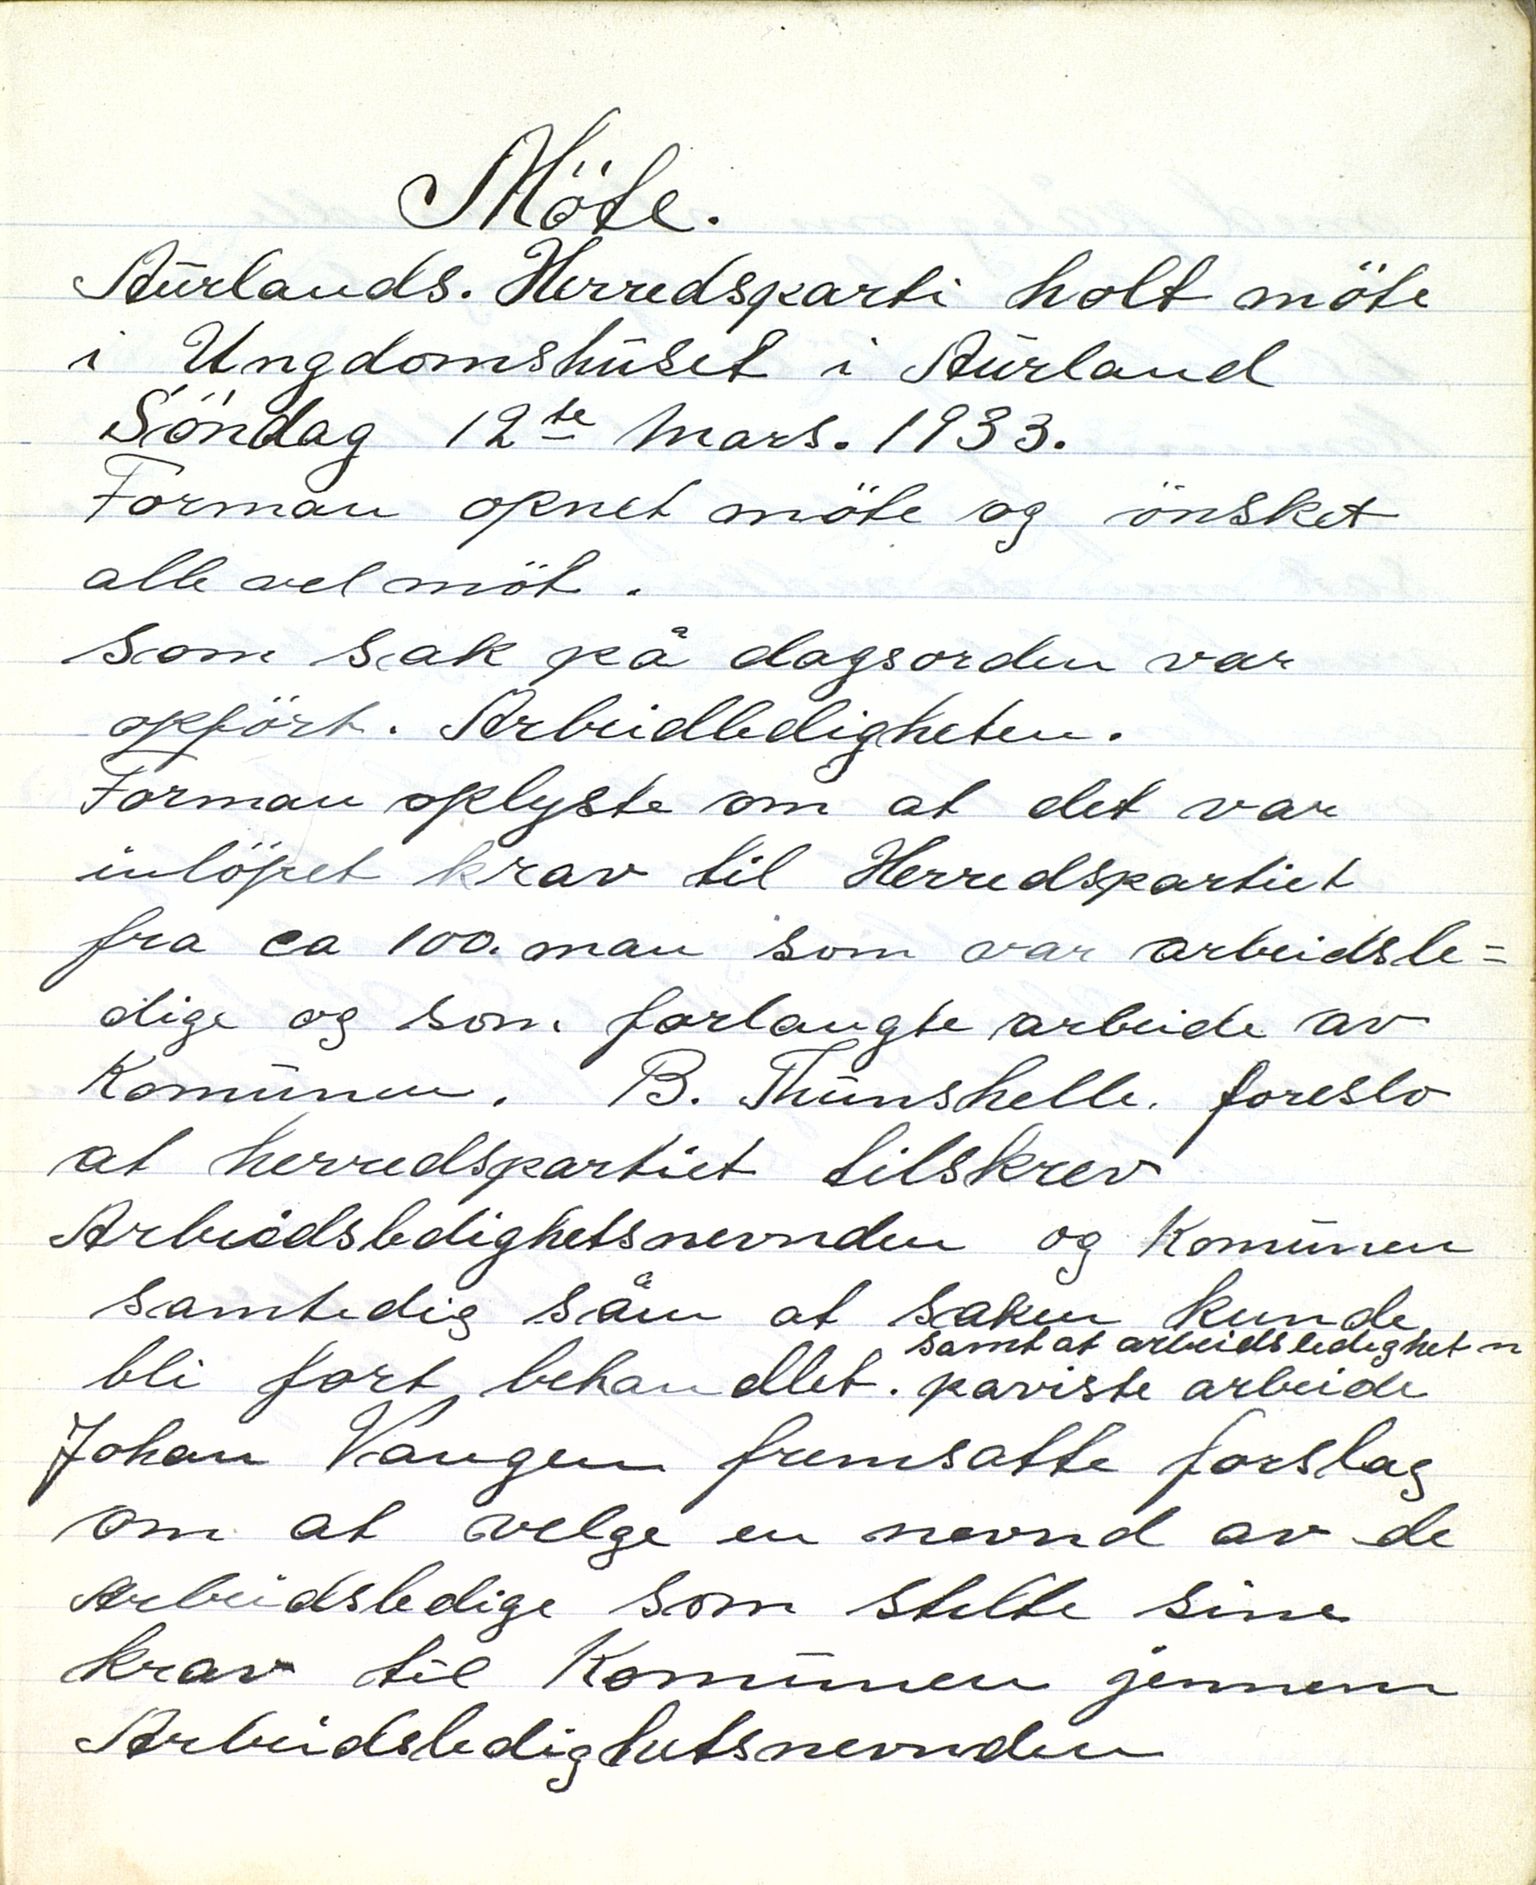 Möte.
Aurlands. Herredsparti holt möte
i Ungdomshuset i Aurland
Söndag 12te Mars. 1933.
Forman opnet möte og önsket
alle vel möt.
Som sak på dagsorden var
opfört. Arbeidledigheten.
Forman oplyste om at det var
inlöpet krav til Herredspartiet
fra ca 100. man som var arbeidsle=
dige og som forlangte arbeide av
Komunen. B. Thunshelle. foreslo
at herredspartiet tilskrev
Arbeidsledighetsnevnden og Komunen
samtedig såm at saken kunde
samt at arbeidsledigheten
bli fort behandlet. paviste arbeide
Johan Vangen fremsatte forslag
om at velge en nevnd av de
Arbeidsledige som stelte sine
krav til Komunen jennem
Arbeidsledighetsnevnden